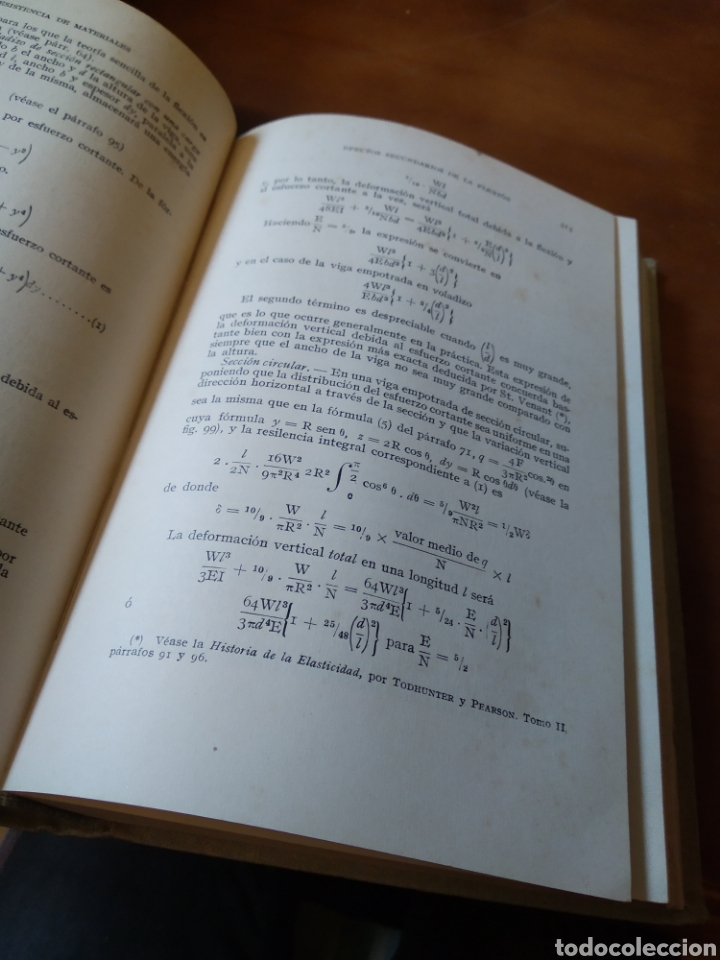 RESISTENCIA DE MATERIALES
para los que la teoría sencilla de la flexión es
(véase párr. 64).
adizo de sección rectangular con una carga
b el ancho y d la altura de la viga.
l, ancho b y espesor dy, paralela a la
de la misma, almacenará una energía
(véase el párrafo 95)
por esfuerzo cortante. De la
esfuerzo cortante es
dy ........(1)
debida al es-
ante
por
da
EFECTOS SECUNDARIOS DE LA FLEXIÓN
y por lo tanto, la deformación vertical total debida a la flexión y
al esfuerzo cortante a la vez, será
Wl³/48EI + ³/₁₀ Wl/Nbd = Wl³/4Ebd³ {1 + ⁶/₅ E/N (d/l)²}
Haciendo E/N = ⁵/₂, la expresión se convierte en
Wl³/4Ebd³ {1 + 3(d/l)²}
y en el caso de la viga empotrada en voladizo
4Wl³/Ebd³ {1 + ³/₄(d/l)²}
El segundo término es despreciable cuando (l/d) es muy grande,
que es lo que ocurre generalmente en la práctica. Esta expresión de
la deformación vertical debida al esfuerzo cortante concuerda bas-
tante bien con la expresión más exacta deducida por St. Venant (*),
siempre que el ancho de la viga no sea muy grande comparado con
la altura.
Sección circular. — En una viga empotrada de sección circular, su-
poniendo que la distribución del esfuerzo cortante sea uniforme en una
dirección horizontal a través de la sección y que la variación vertical
sea la misma que en la fórmula (5) del párrafo 71, q = 4F/3πR² cos.²θ en
cuya fórmula y = R sen θ, z = 2R cos θ, dy = R cos θdθ (véase la
fig. 99), y la resilencia integral correspondiente a (1) es
2 · l/2N · 16W²/9π²R⁴ 2R² ∫₀^(π/2) cos⁶ θ . dθ = ⁵/₉ W²l/πNR² = ¹/₂ Wδ
de donde
δ = ¹⁰/₉ · W/πR² · l/N = ¹⁰/₉ × valor medio de q/N × l
La deformación vertical total en una longitud l será
Wl³/3EI + ¹⁰/₉ · W/πR² · l/N = 64Wl³/3πd⁴E {1 + ⁵/₂₄ · E/N · (d/l)²}
ó
64Wl³/3πd⁴E {1 + ²⁵/₄₈ (d/l)²} para E/N = ⁵/₂
(*) Véase la Historia de la Elasticidad, por TODHUNTER y PEARSON. Tomo II,
párrafos 91 y 96.
todocoleccion